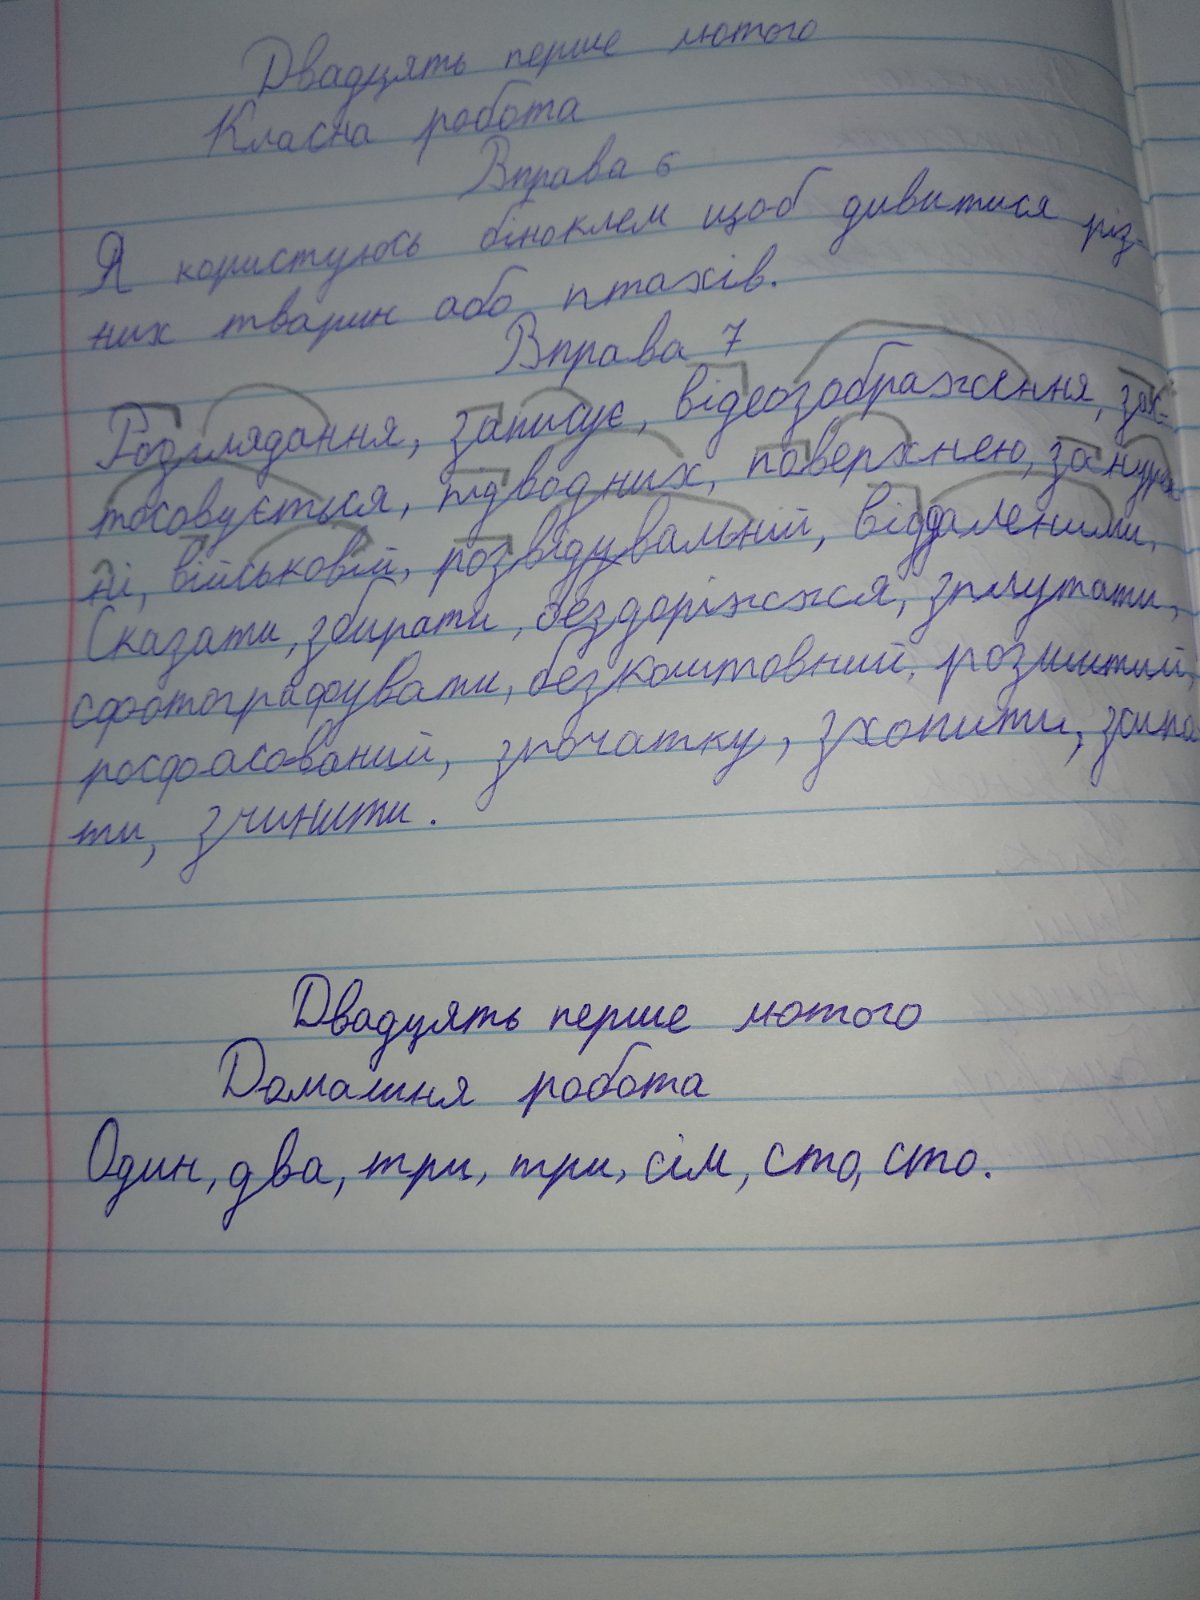 Двадцять перше лютого
Класна робота
Вправа 6
Я користуюсь біноклем щоб дивитися різ-
них тварин або птахів.
Вправа 7
Розглядання, записує, відеозображення, зас-
тосовується, підводних, поверхнею, занурен
ні, військовій, розвідувальній, віддаленими,
Сказати, збирати, бездоріжжя, змутати,
сфотографувати, безкоштовний, розшитий,
росфасований, зпочатку, зхопити,
ти, зчинити.
Двадцять перше лютого
Домашня робота
Один, два, три, три, сім, сто, сто.